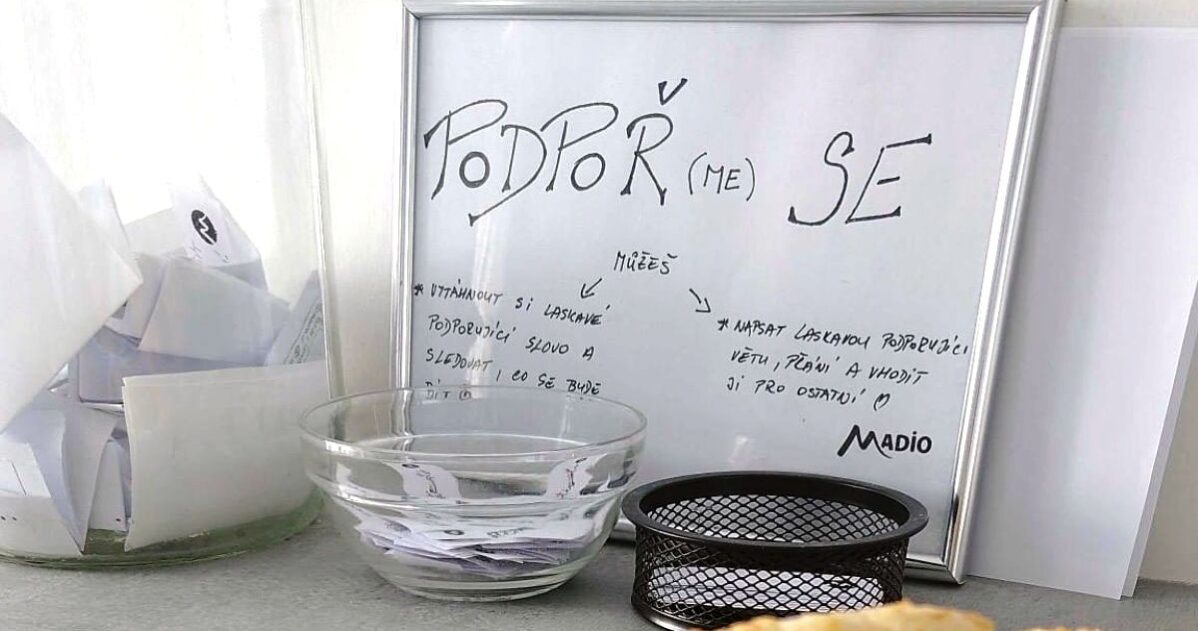 PODPOŘ (ME) SE
MŮŽEŠ
* VYTÁHNOUT SI LASKAVÉ
PODPORUJÍCÍ SLOVO A
SLEDOVAT, CO SE BUDE
DÍT
* NAPSAT LASKAVOU PODPORUJÍCÍ
VĚTU, PŘÁNÍ A VHODIT
JI PRO OSTATNÍ
MADIO